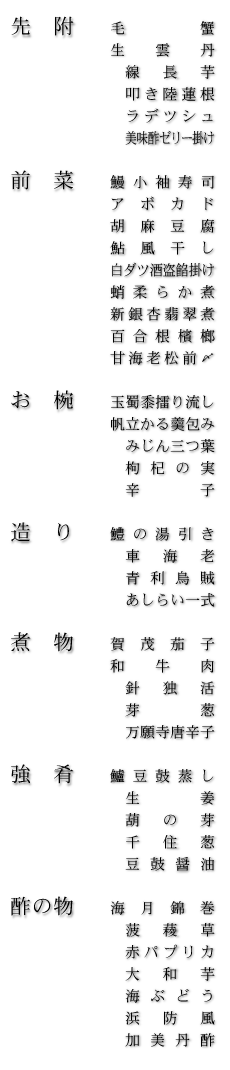 先附　毛蟹
生雲丹
線長芋
叩き陸蓮根
ラデツシュ
美味酢ゼリー掛け
前菜　鰻小袖寿司
アボカド
胡麻豆腐
鮎風干し
白ダツ酒盗餡掛け
蛸柔らか煮
新銀杏翡翠煮
百合根檳榔
甘海老松前〆
お椀　玉蜀黍擂り流し
帆立かる羹包み
みじん三つ葉
枸杞の実
辛子
造り　鱧の湯引き
車海老
青利烏賊
あしらい一式
煮物　賀茂茄子
和牛肉
針独活
芽葱
万願寺唐辛子
強肴　鱸豆鼓蒸し
生姜
葫の芽
千住葱
豆鼓醤油
酢の物　海月錦巻
菠薐草
赤パプリカ
大和芋
海ぶどう
浜防風
加美丹酢